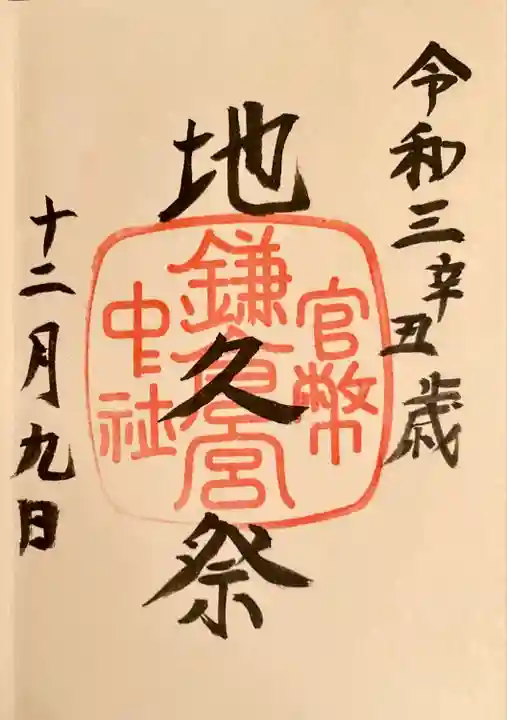 令和三辛丑歳
地久祭
官幣
鎌倉宮
中社
十二月九日